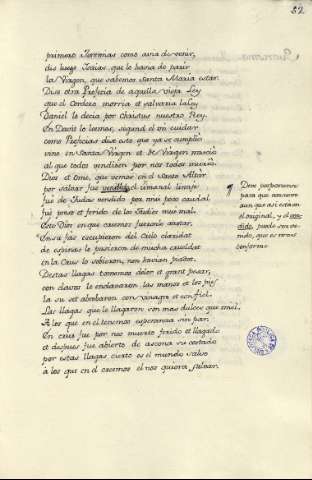 82
primero Jeremias como avia de venir,
diz luego Isaias que le havia de parir
la Virgen, que sabemos Santa Maria estar.
Dise otra Profecia de aquella vieja Ley
que el Cordero morria et salvaria la Ley
Daniel lo decia por Christus nuestro Rey,
En David lo leemos, segund el mi cuidar.
como Profecias dise esto que ya se cumplió
vino en Santa Virgen et de Virgen nasció
al que todos bendicen por nos todos murió
Dios et Ome, que vemos en el Santo Altar
por salvar fue vendido el umanal linaje
fué de Judas vendido por mui poco caudal
fué preso et ferido de los Judios mui mal
Este Dios en que creemos fueronle azotar.
En su fas escupieron del Cielo claridat
de espinas le pusieron de mucha crueldat
en la Crus lo sobieron, non havian piedat
Destas llagas tenemos dolor et grant pesar,
con clavos le enclavaron las manos et los pies
la su set abebraron con vinagre et con fiel
Las llagas que le llagaron son mas dulces que miel
A los que en él tenemos esperanza sin par.
En crus fue por nos muerto ferido et llagado
et despues fue abierto de ascona su costado
por estas llagas cierto es el mundo salvo
á los que en él creemos el nos quiera salvar.
¶ Debe posponerse
para que consuene
aunque asi está en
el original, y el ven-
dido, puede ser ve-
nido, que es mas
conforme